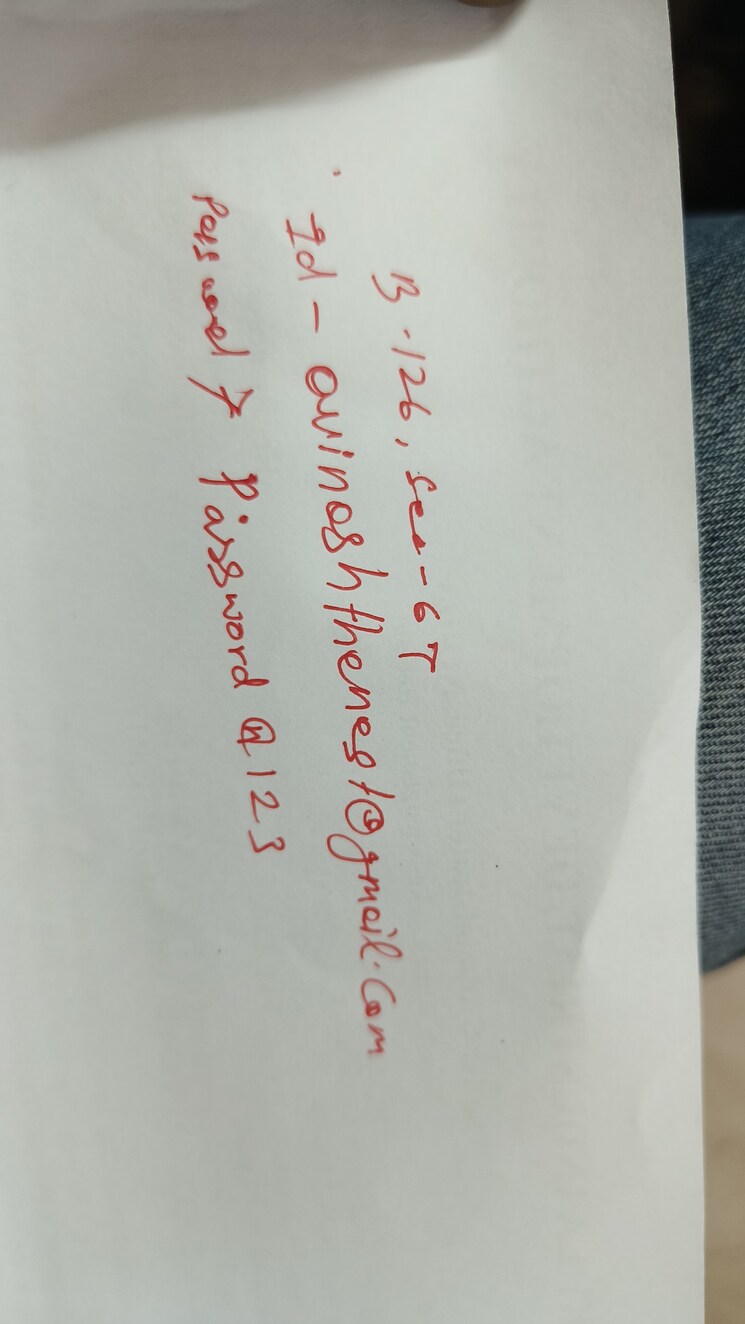 B-126, Sec-67
Id - avinashthenest@gmail.com
Password → Password@123